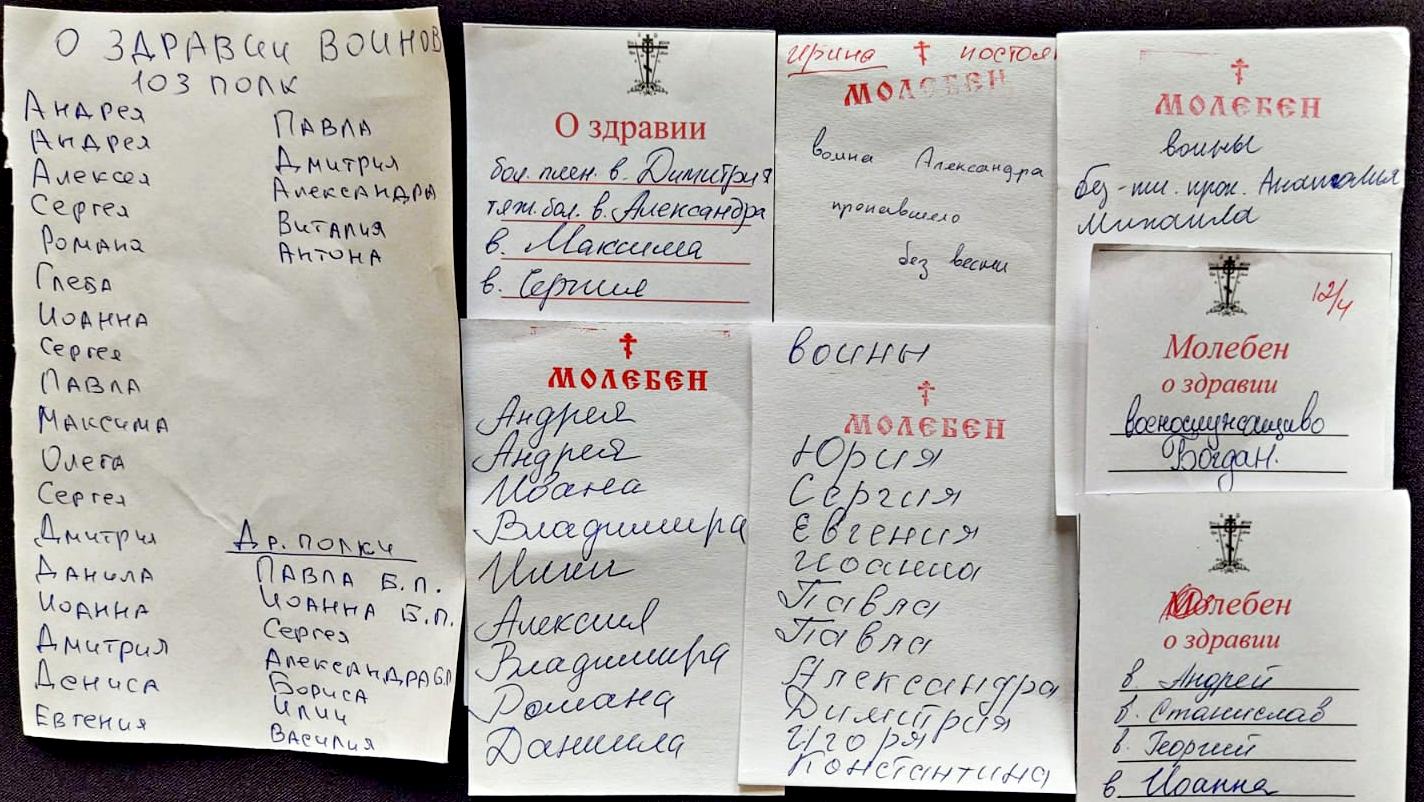 О ЗДРАВИИ ВОИНОВ
103 ПОЛК
Андрея
Андрея
Алексея
Сергея
Романа
Глеба
Иоанна
Сергея
Павла
Максима
Олега
Сергея
Дмитрия
Данила
Иоанна
Дмитрия
Дениса
Евгения
Павла
Дмитрия
Александра
Виталия
Антона
Др. полки
Павла Б.П.
Иоанна Б.П.
Сергея
Александра Б.П
Бориса
Илии
Василия
О здравии
бол. плен. в. Димитрия
тяж. бол. в. Александра
в. Максима
в. Сергия
МОЛЕБЕН
Андрея
Андрея
Иоана
Владимира
Илии
Алексия
Владимира
Романа
Даниила
Ирина постоя
МОЛЕБЕН
воина Александра
пропавшего
без вести
воины
МОЛЕБЕН
Юрия
Сергия
Евгения
Иоанна
Павла
Павла
Александра
Димитрия
Игоря
Константина
МОЛЕБЕН
воины
без-ти. проп. Анатолия
Михаила
12/4
Молебен
о здравии
Богдан.
Молебен
о здравии
в. Андрей
в. Станислав
в. Георгий
в Иоанна